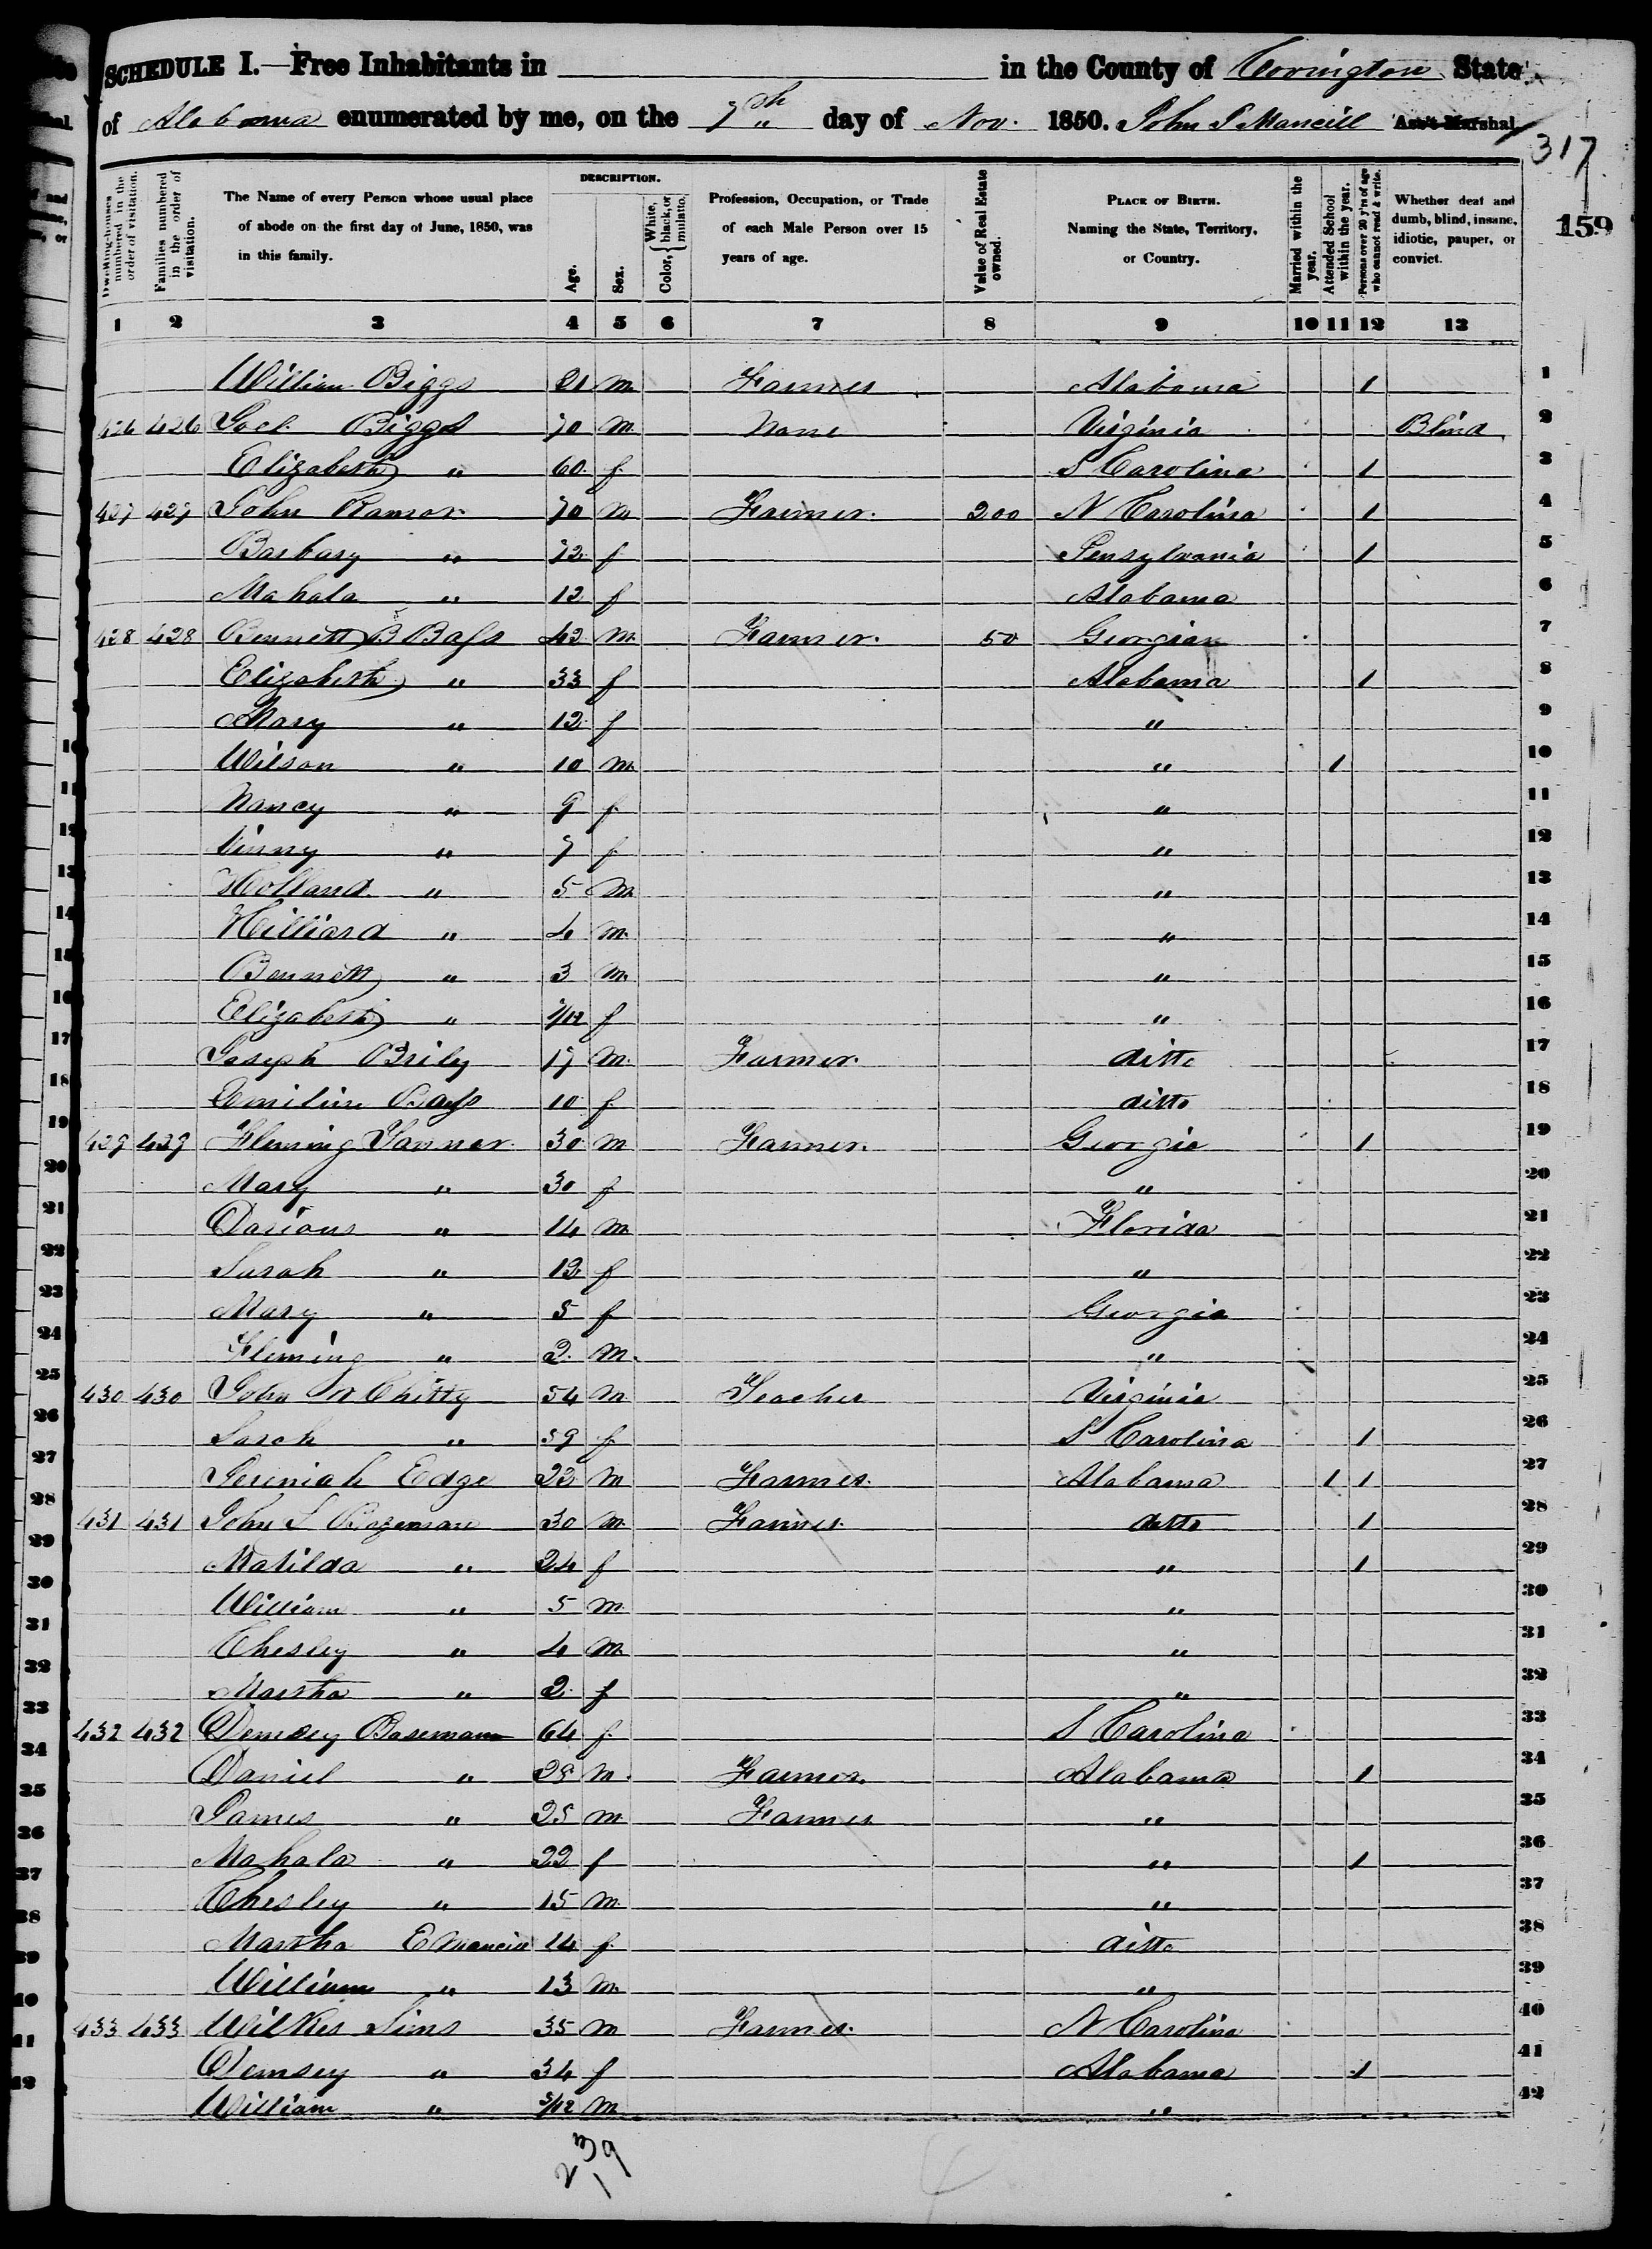 SCHEDULE I.—Free Inhabitants in in the County of Covington State
of Alabama enumerated by me, on the 7th day of Nov. 1850. John S Mancill Ass't Marshal.
317
159
Dwelling-houses numbered in the order of visitation.
Families numbered in the order of visitation.
The Name of every Person whose usual place of abode on the first day of June, 1850, was in this family.
DESCRIPTION.
Age.
Sex.
Color, { White, black, or mulatto.
Profession, Occupation, or Trade of each Male Person over 15 years of age.
Value of Real Estate owned.
PLACE OF BIRTH. Naming the State, Territory, or Country.
Married within the year.
Attended School within the year.
Persons over 20 y'rs of age who cannot read & write.
Whether deaf and dumb, blind, insane, idiotic, pauper, or convict.
1 2 3 4 5 6 7 8 9 10 11 12 13
William Biggs 21 m Farmer Alabama 1 1
426 426 Joel Biggs 70 m None Virginia Blind 2
Elizabeth " 60 f S Carolina 1 3
427 427 John Ramor 70 m Farmer. 200 N Carolina 1 4
Barbary " 72 f Pensylvania 1 5
Mahala " 12 f Alabama 6
428 428 Bennett B Bass 42 m Farmer. 50 Georgia 7
Elizabeth " 33 f Alabama 1 8
Mary " 12 f " 9
10 Wilson " 10 m " 1 10
11 Nancy " 9 f " 11
12 Vinny " 7 f " 12
13 Holland " 5 m " 13
14 Hilliard " 4 m " 14
15 Bennett " 3 m " 15
16 Elizabeth " /12 f " 16
17 Joseph Brily 17 m Farmer. ditto 17
18 Emiline Bass 10 f ditto 18
19 429 429 Fleming Tanner 30 m Farmer. Georgia 1 19
20 Mary " 30 f " 20
21 Darious " 14 m Florida 21
22 Sarah " 12 f " 22
23 Mary " 5 f Georgia 23
24 Fleming " 2 m " 24
25 430 430 John W Chitty 54 m Teacher Virginia 25
26 Sarah " 59 f S Carolina 1 26
27 Jerimiah Edge 22 m Farmer. Alabama 1 1 27
28 431 431 John L Bozeman 30 m Farmer. ditto 1 28
29 Matilda " 24 f " 1 29
30 William " 5 m " 30
31 Chesley " 4 m " 31
32 Martha " 2 f " 32
33 432 432 Demsey Boseman 64 f S Carolina 33
34 Daniel " 28 m Farmer. Alabama 1 34
35 James " 25 m Farmer " 35
36 Mahala " 22 f " 1 36
37 Chesley " 15 m " 37
38 Martha E Mancill 14 f ditto 38
39 William " 13 m " 39
40 433 433 Wilkes Sims 35 m Farmer. N Carolina 40
41 Demsey " 34 f Alabama 1 41
42 William " 5/12 m " 42
239
1